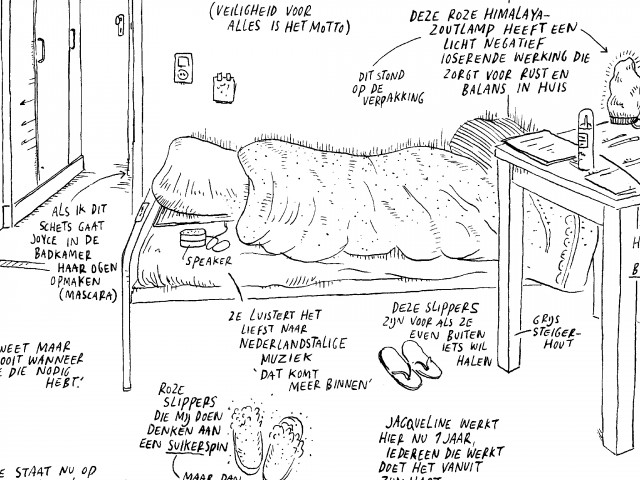 (VEILIGHEID VOOR
ALLES IS HET MOTTO)
DEZE ROZE HIMALAYA-
ZOUTLAMP HEEFT EEN
LICHT NEGATIEF
IOSERENDE WERKING DIE
ZORGT VOOR RUST EN
BALANS IN HUIS
DIT STOND
OP DE
VERPAKKING
ALS IK DIT
SCHETS GAAT
JOYCE IN DE
BADKAMER
HAAR OGEN
OPMAKEN
(MASCARA)
SPEAKER
ZE LUISTERT HET
LIEFST NAAR
NEDERLANDSTALIGE
MUZIEK
'DAT KOMT
MEER BINNEN'
DEZE SLIPPERS
ZIJN VOOR ALS ZE
EVEN BUITEN
IETS WIL
HALEN
GRIJS
STEIGER-
HOUT
H
B
WEET MAAR
OOIT WANNEER
E DIE NODIG
HEBT.'
ROZE
SLIPPERS
DIE MIJ DOEN
DENKEN AAN
EEN SUIKERSPIN
MAAR DAN
JACQUELINE WERKT
HIER NU 1 JAAR,
IEDEREEN DIE WERKT
DOET HET VANUIT
E STAAT NU OP